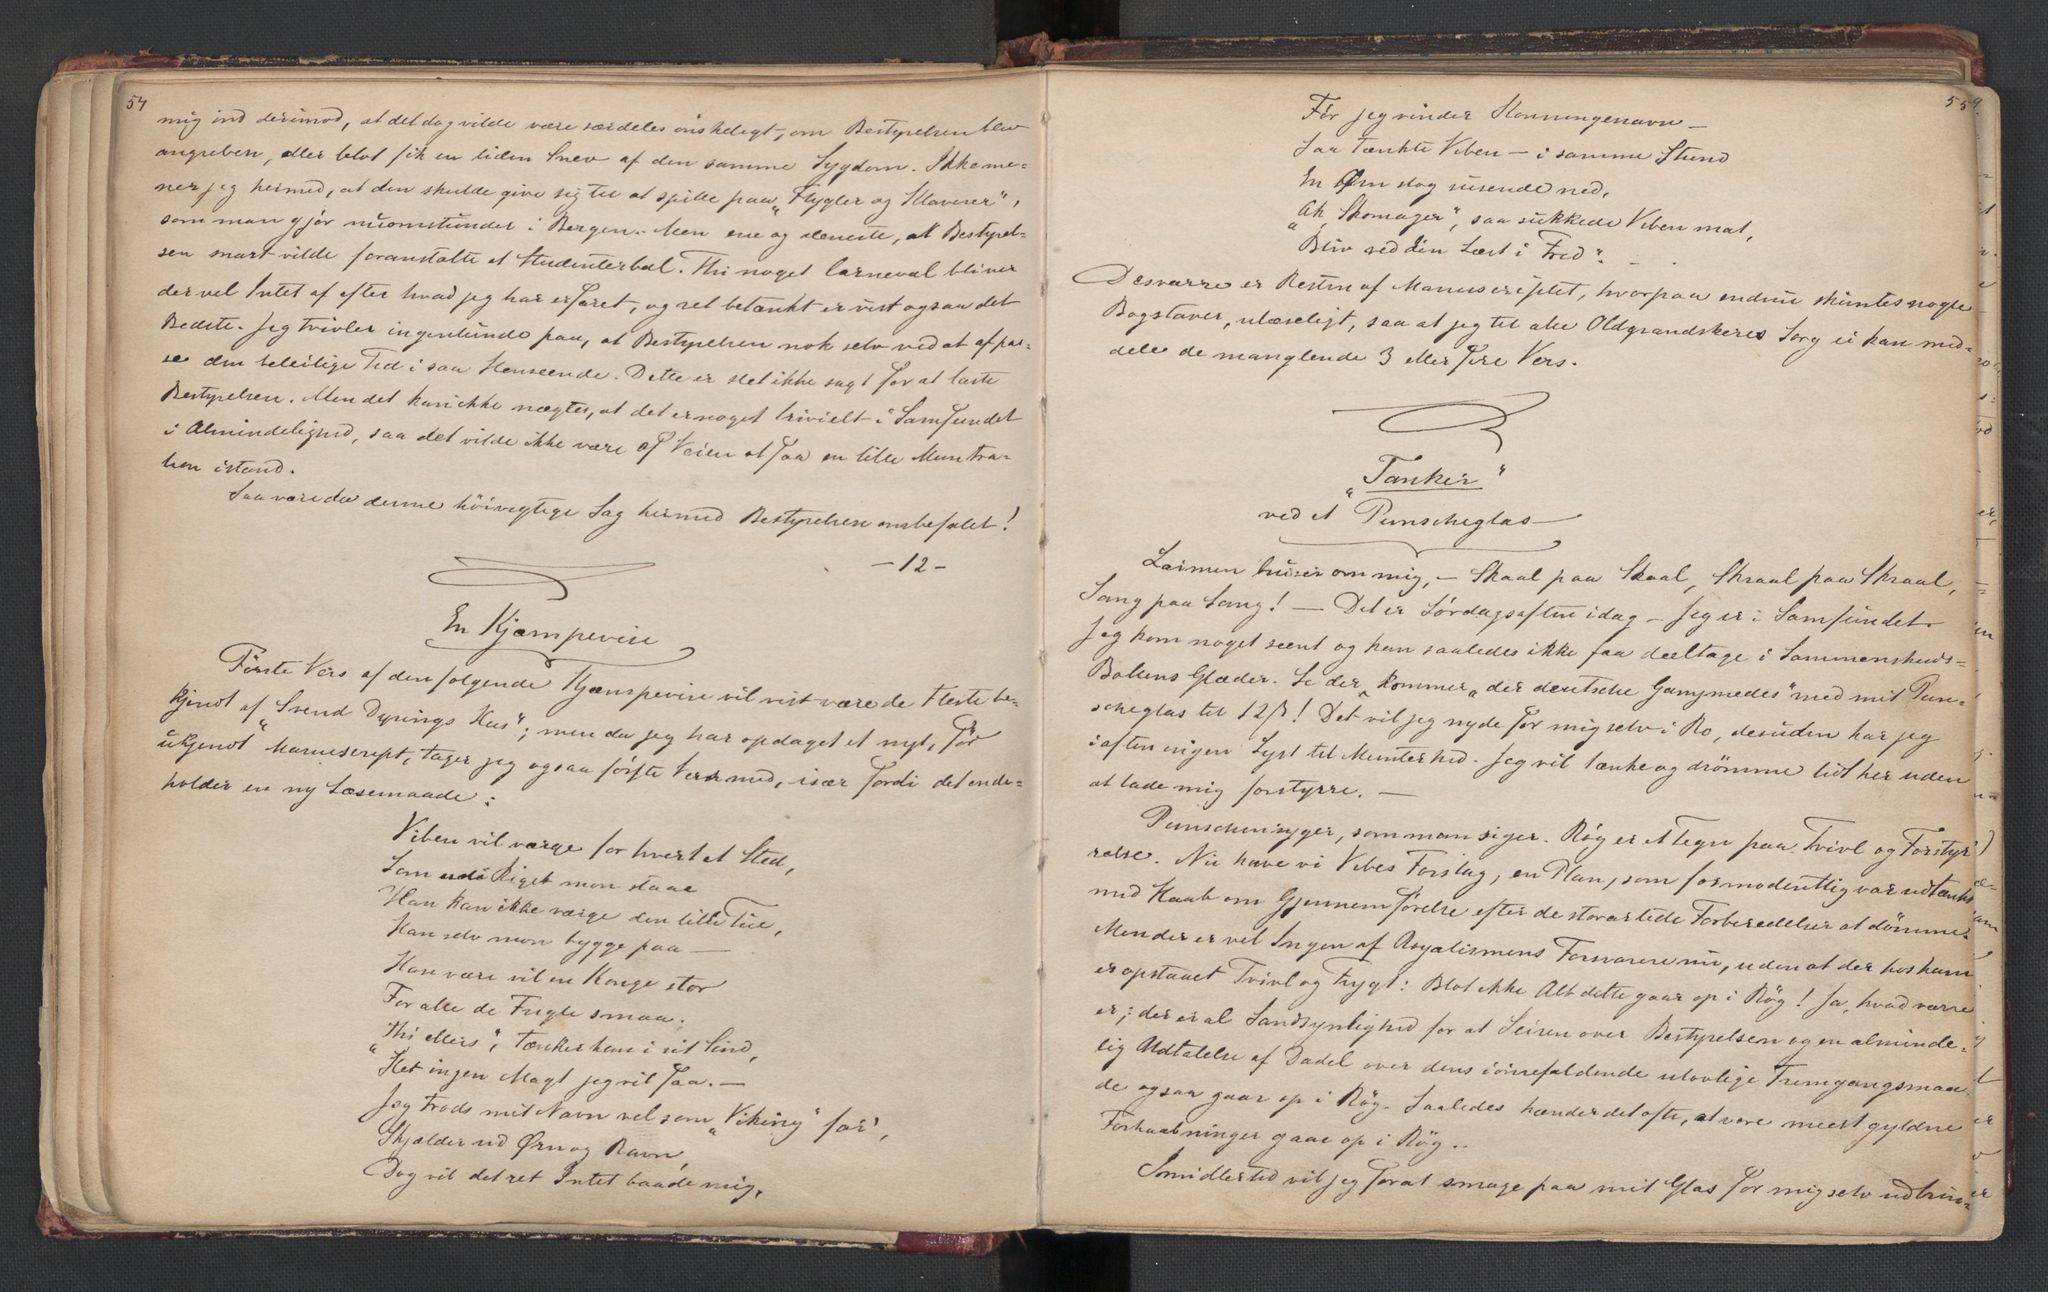 54
mig ind derimod, at det dog vilde være særdeles ønskeligt, om Bestyrelsen blev
angreben, eller blot fik en liden Snev af den samme Sygdom. Ikke me-
ner jeg hermed, at den skulde give sig til at spille paa „Flygler og Klaverer“,
som man gjør nuomstunder i Bergen. Men ene og aleneste, at Bestyrel-
sen snart vilde foranstalte et Studenterbal. Thi noget Carneval bliver
der vel Intet af efter hvad jeg har erfaret, og ret betænkt er vist ogsaa det
Bedste. Jeg tvivler ingenlunde paa, at Bestyrelsen nok selv ved at afpas-
se den beleilige Tid i saa Henseende. Dette er slet ikke sagt for at laste
Bestyrelsen. Men det kan ikke nægtes, at det er noget trivielt i Samfundet
i Almindelighed, saa det vilde ikke være af Veien at faa en lille Muntra-
tion istand.
Saa være da denne höivigtige Sag hermed Bestyrelsen anbefalet!
– 12 –
En Kjæmpevise
Første Vers af den følgende Kjæmpevise vil vist være de Fleste be-
kjendt af „Svend Dyrings Hus“; men da jeg har opdaget et nyt, før
ukjendt Manuscript, tager jeg ogsaa første Vers med, især fordi det inde-
holder en ny Læsemaade:
Viben vil værge for hvert et Sted,
Som udi Riget mon staae
Han kan ikke værge den lille Tue,
Han selv mon bygge paa –
Han være vil en Konge stor
For alle de Fugle smaa.
„Thi ellers“, tænker han i sit Sind,
„Slet ingen Magt jeg vil faa. –
Jeg trods mit Navn vel som „Viking“ foer,
Skjælder ud Ørn og Ravn,
Dog vil det ret Intet baade mig,
55
Før jeg vinder Konningenavn –
Saa tænkte Viben – i samme Stund
En Ørn slog susende ned,
„Ak, Skomager“, saa sukkede Viben mat,
„Bliv ved din Læst i Fred“.
Desværre er Resten af Manuscriptet, hvorpaa endnu skimtes nogle
Bogstaver, ulæseligt, saa at jeg til alle Oldgrandskeres Sorg ei kan med-
dele de manglende 3 eller fire Vers.
„Tanker“
ved et Punscheglas
Larmen bruser om mig, – Skaal paa Skaal, Skraal paa Skraal,
Sang paa Sang! – Det er Lørdagsaften idag – Jeg er i Samfundet
Jeg kom noget seent og kan saaledes ikke faa deeltage i Sammenskuds-
Bollens Glæder. Se der „kommer „der deutsche Ganymedes“ med mit Pun-
scheglas til 12 ß! Det vil jeg nyde for mig selv i Ro, desuden har jeg
iaften ingen Lyst til Munterhed. Jeg vil tænke og drömme lidt her uden
at lade mig forstyrre. –
Punschen ryger, som man siger. Røg er et Tegn paa Tvivl og Forstyr-
relse. Nu have vi Vibes Forslag, en Plan, som formodentlig var udtænkt
med Haab om Gjennemførelse efter de storartede Forberedelser at dömme.
Men der er vel Ingen af Royalismens Forsvarere nu, uden at der hos ham
er opstaaet Tvivl og Frygt: Blot ikke Alt dette gaar op i Røg! Ja, hvad værre
er; der er al Sandsynlighed for at Seiren over Bestyrelsen og en alminde-
lig Udtalelse af Dadel over dens iöinefaldende ulovlige Fremgangsmaa-
de ogsaa gaar op i Røg. Saaledes hænder det ofte, at vore meest gyldne
Forhaabninger gaae op i Røg..
Imidlertid vil jeg forat smage paa mit Glas for mig selv udbrin-